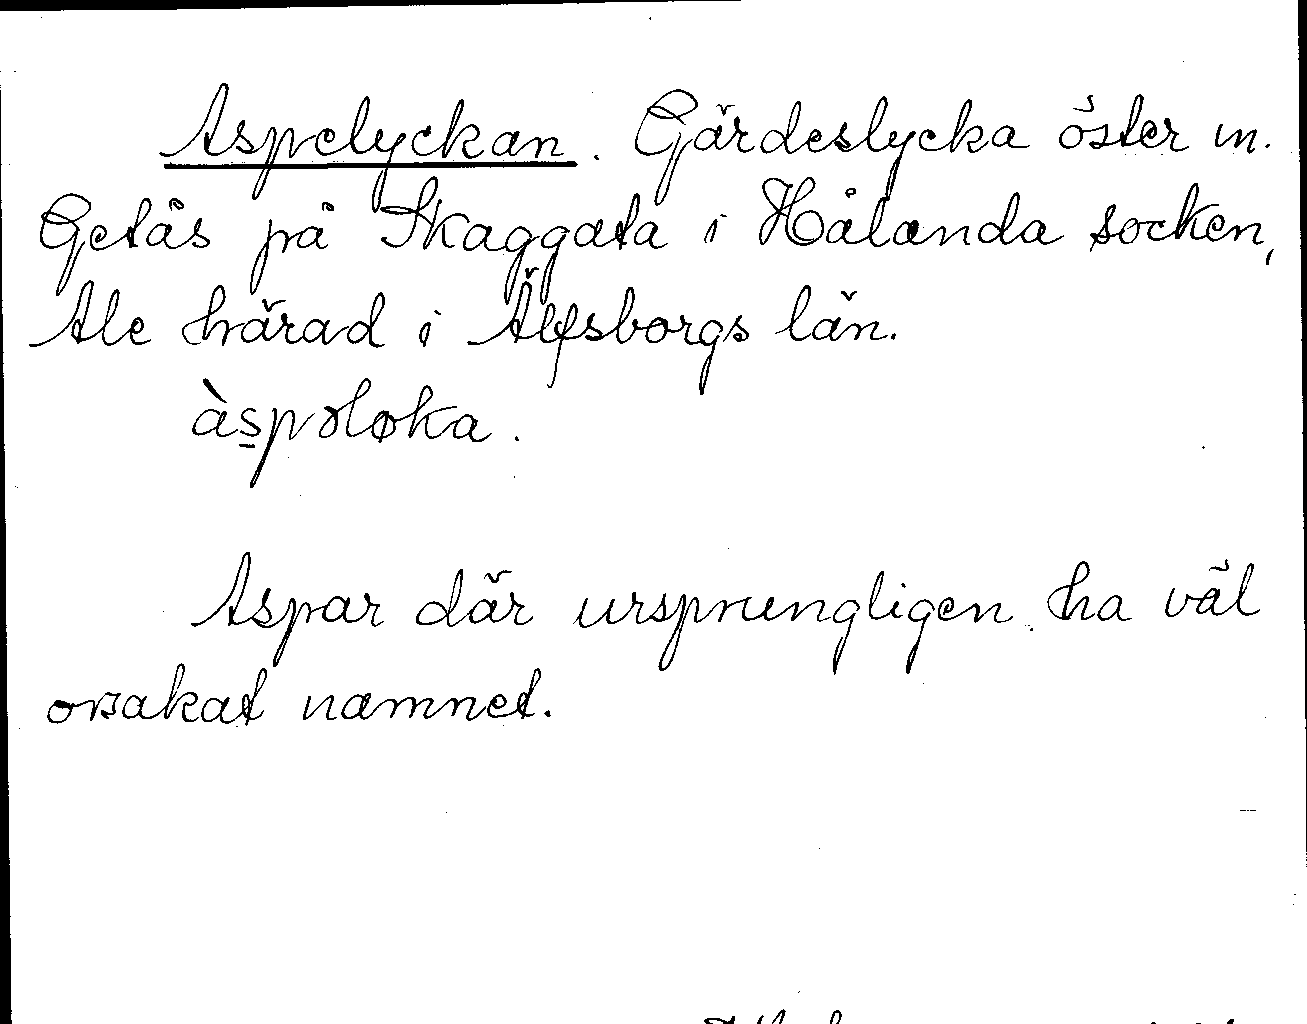 Aspelyckan. Gärdeslycka öster in.
Getås på Skaggata i Hålanda socken,
Ale härad i Älfsborgs län.
às̱pəløka.
Aspar där ursprungligen ha väl
orsakat namnet.